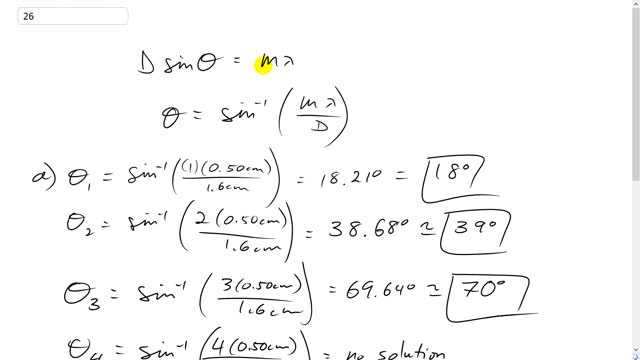 26
D sinθ = mλ
θ = sin⁻¹ (mλ/D)
a) θ₁ = sin⁻¹ ((1)(0.50cm)/1.6cm) = 18.21° = 18°
θ₂ = sin⁻¹ (2(0.50cm)/1.6cm) = 38.68° ≃ 39°
θ₃ = sin⁻¹ (3(0.50cm)/1.6cm) = 69.64° ≃ 70°
θ₄ = sin⁻¹ (4(0.50cm) = no solution